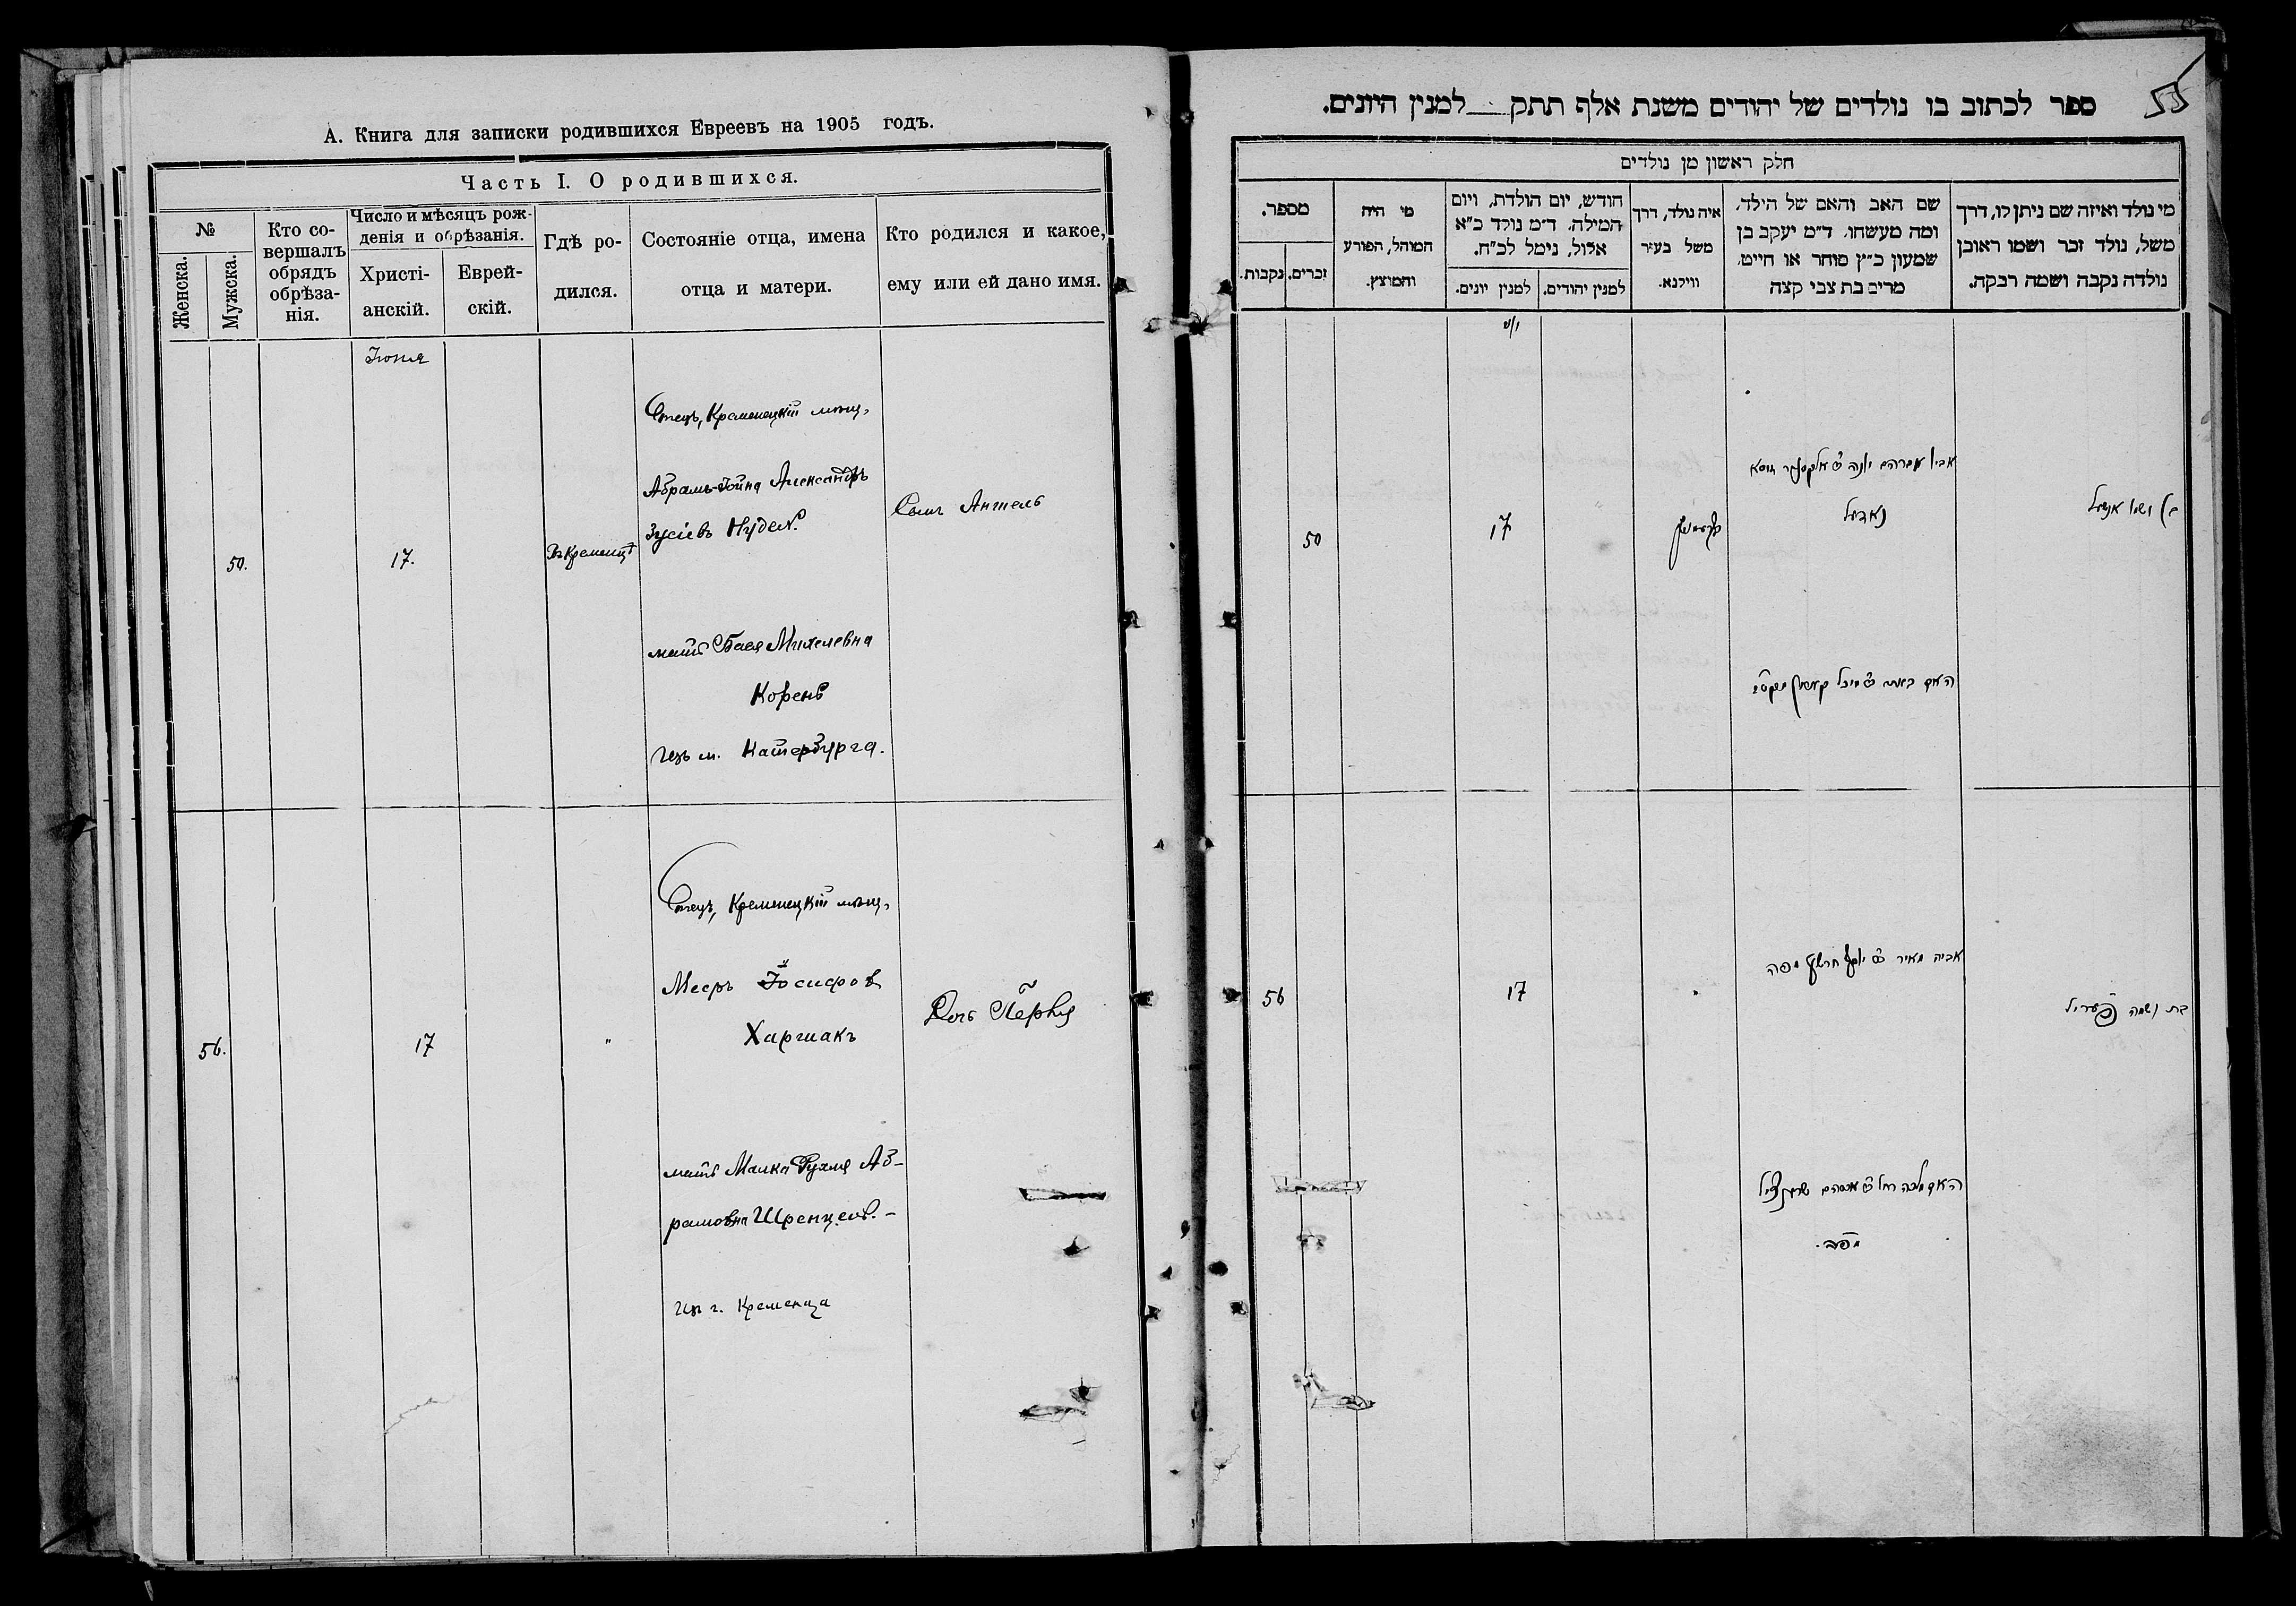 А. Книга для записки родившихся Евреевъ на 1905 годъ.
Часть I. О родившихся.
№
Женска.
Мужска.
Кто со-
вершалъ
обрядъ
обрѣза-
нія.
Число и мѣсяцъ рож-
денія и обрѣзанія.
Христі-
анскій.
Еврей-
скій.
Гдѣ ро-
дился.
Состояніе отца, имена
отца и матери.
Кто родился и какое,
ему или ей дано имя.
Іюня
50.
17.
Въ Кременцѣ
Отецъ, Кременецкій мѣщ.
Абрамъ-Іойна Александръ
Зусіевъ Нудель
мать Бася Михелевна
Корень
изъ м. Катербурга.
Сынъ Аншель
56.
17
"
Отецъ, Кременецкій мѣщ.
Меєръ Іосифов
Харшакъ
мать Малка Рухля Аб-
рамовна Шренцель.-
из г. Кременца
Дочь Перля
55
ספר לכתוב בו נולדים של יהודים משנת אלף תתק למנין היונים.
חלק ראשון מן נולדים
מספר.
נקבות.
זכרים.
מי היה
המוהל, הפורע
והמוצץ.
חודש, יום הולדת, ויום
המילה. ד״מ נולד כ״א
אלול, נימל לכ״ח.
למנין יונים.
למנין יהודים.
איה נולד, דרך
משל בעיר
ווילנא.
שם האב והאם של הילד,
ומה מעשהו. ד״מ יעקב בן
שמעון כ״ץ סוחר או חייט.
מרים בת צבי קצה
מי נולד ואיזה שם ניתן לו, דרך
משל, נולד זכר ושמו ראובן
נולדה נקבה ושמה רבקה.
50
17
"
קרעמעניץ
אביו אברהם יונה
נאדיל
בן ושמו אנשיל
האם באסי
56
17
אביה מאיר ב״ר יוסף חרשק מפה
בת ושמה פערל
האם מלכה רחל ב״ר אברהם
מפה.